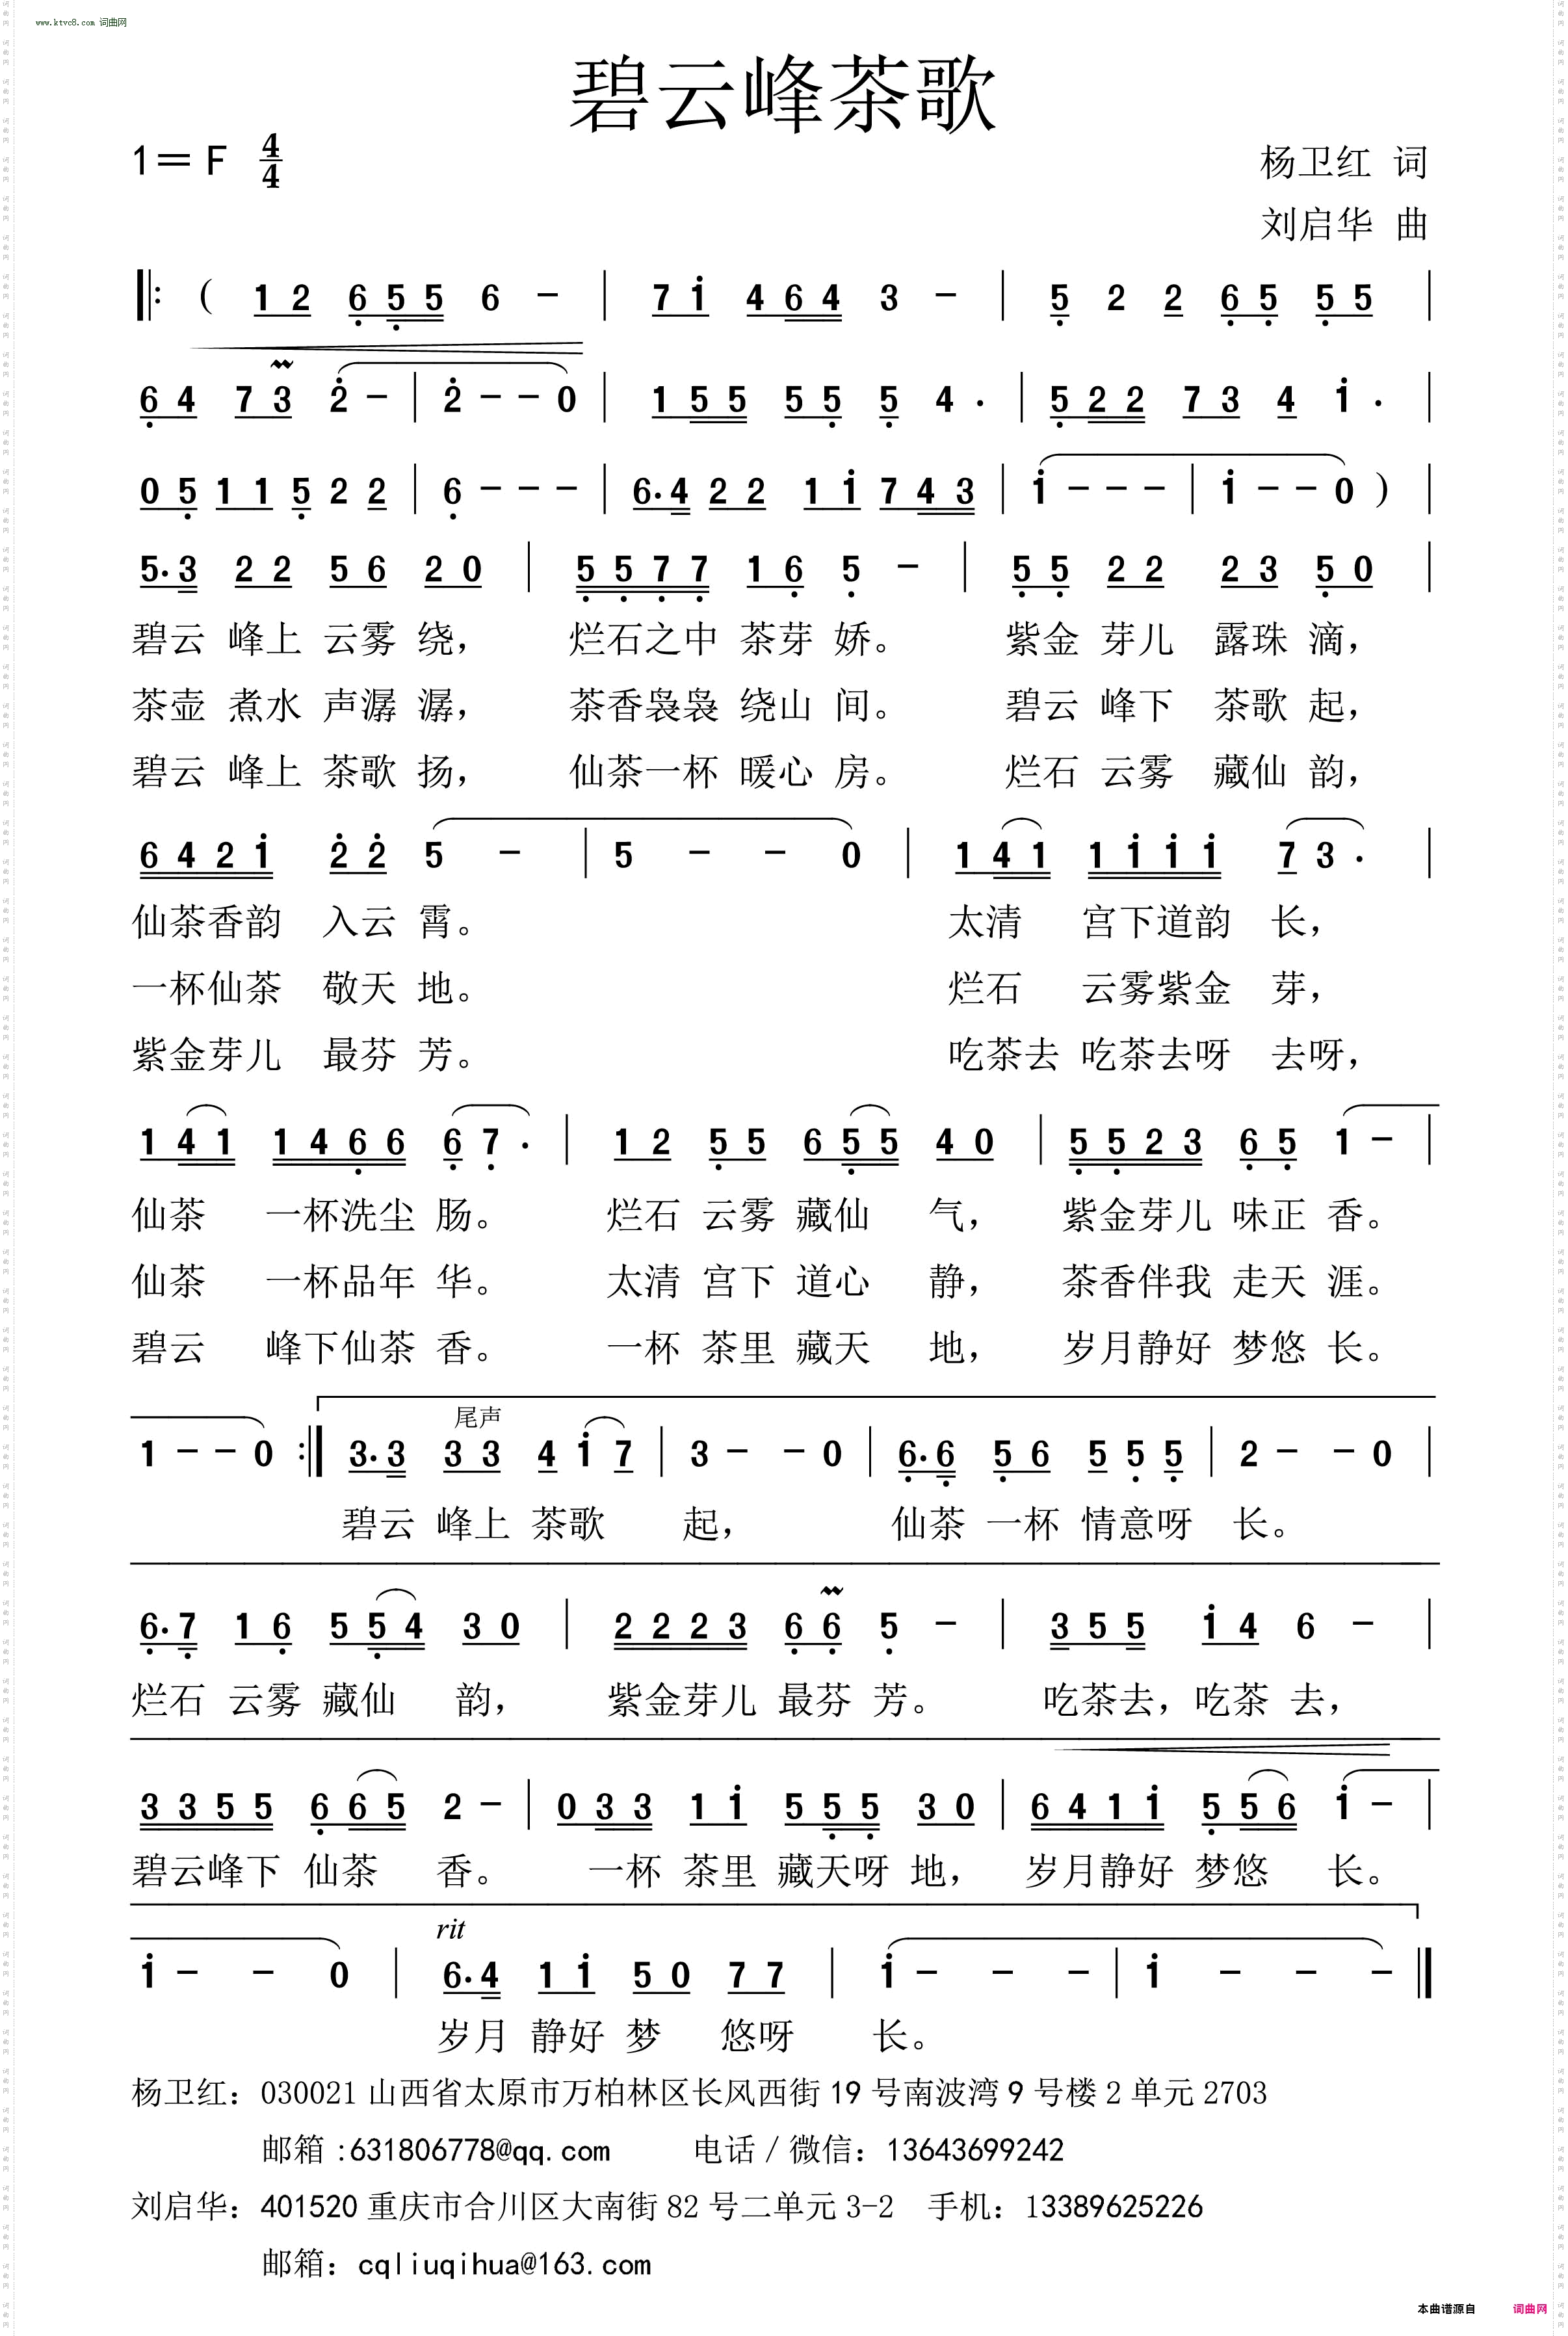 www.ktvc8.com 词曲网
碧云峰茶歌
1=F 4/4
杨卫红 词
刘启华 曲
( 1 2 6 5 5 6 - | 7 1 4 6 4 3 - | 5 2 2 6 5 5 5 |
6 4 7 3 2 - | 2 - - 0 | 1 5 5 5 5 5 4 . | 5 2 2 7 3 4 1 . |
0 5 1 1 5 2 2 | 6 - - - | 6 . 4 2 2 1 1 7 4 3 | 1 - - - | 1 - - 0 )
5 . 3 2 2 5 6 2 0 | 5 5 7 7 1 6 5 - | 5 5 2 2 2 3 5 0 |
碧云 峰上 云雾 绕, 烂石之中 茶芽 娇。 紫金 芽儿 露珠 滴,
茶壶 煮水 声潺 潺, 茶香袅袅 绕山 间。 碧云 峰下 茶歌 起,
碧云 峰上 茶歌 扬, 仙茶一杯 暖心 房。 烂石 云雾 藏仙 韵,
6 4 2 1 2 2 5 - | 5 - - 0 | 1 4 1 1 1 1 1 7 3 . |
仙茶香韵 入云 霄。 太清 宫下道韵 长,
一杯仙茶 敬天 地。 烂石 云雾紫金 芽,
紫金芽儿 最芬 芳。 吃茶去 吃茶去呀 去呀,
1 4 1 1 4 6 6 6 7 . | 1 2 5 5 6 5 5 4 0 | 5 5 2 3 6 5 1 - |
仙茶 一杯洗尘 肠。 烂石 云雾 藏仙 气, 紫金芽儿 味正 香。
仙茶 一杯品年 华。 太清 宫下 道心 静, 茶香伴我 走天 涯。
碧云 峰下仙茶 香。 一杯 茶里 藏天 地, 岁月静好 梦悠 长。
尾声
1 - - 0 :| 3 . 3 3 3 4 1 7 | 3 - - 0 | 6 . 6 5 6 5 5 5 | 2 - - 0 |
碧云 峰上 茶歌 起, 仙茶 一杯 情意呀 长。
6 . 7 1 6 5 5 4 3 0 | 2 2 2 3 6 6 5 - | 3 5 5 1 4 6 - |
烂石 云雾 藏仙 韵, 紫金芽儿 最芬 芳。 吃茶去, 吃茶 去,
3 3 5 5 6 6 5 2 - | 0 3 3 1 1 5 5 5 3 0 | 6 4 1 1 5 5 6 1 - |
碧云峰下 仙茶 香。 一杯 茶里 藏天呀 地, 岁月静好 梦悠 长。
rit
1 - - 0 | 6 . 4 1 1 5 0 7 7 | 1 - - - | 1 - - - ‖
岁月 静好 梦 悠呀 长。
杨卫红: 030021 山西省太原市万柏林区长风西街 19 号南波湾 9 号楼 2 单元 2703
邮箱 :631806778@qq.com 电话 / 微信: 13643699242
刘启华: 401520 重庆市合川区大南街 82 号二单元 3-2 手机: 13389625226
邮箱: cqliuqihua@163.com
本曲谱源自 词曲网